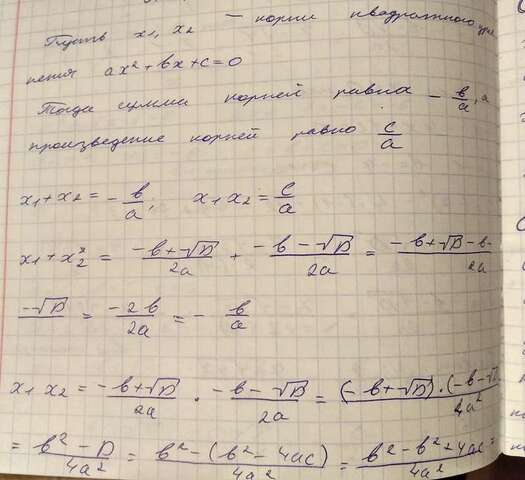 Пусть x₁, x₂ – корни квадратного урав
нения ax² + bx + c = 0
Тогда сумма корней равна - b/a, а
произведение корней равно c/a
x₁ + x₂ = - b/a, x₁ x₂ = c/a
x₁ + x₂ = (-b+√D)/2a + (-b-√D)/2a = (-b+√D-b-)/2a
-√D = -2b/2a = - b/a
x₁ x₂ = (-b+√D)/2a · (-b-√D)/2a = (-b+√D)·(-b-√D)/4a²
= (b²-D)/4a² = (b²-(b²-4ac))/4a² = (b²-b²+4ac)/4a² =